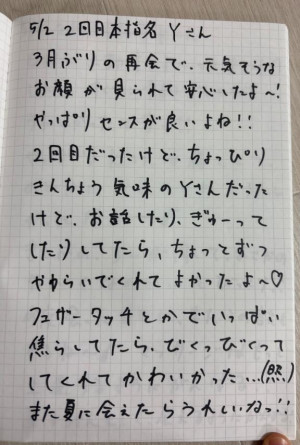 5/2 2回目本指名 Yさん
3月ぶりの再会で、元気そうな
お顔が見られて安心したよ〜!
やっぱりセンスが良いよね!!
2回目だったけど、ちょっぴり
きんちょう気味のYさんだった
けど、お話したり、ぎゅーって
したりしてたら、ちょっとずつ
やわらいでくれてよかったよ〜♡
フェザータッチとかでいっぱい
焦らしてたら、びくっびくって
してくれてかわいかった…(照)
また夏に会えたらうれしいなっ!!